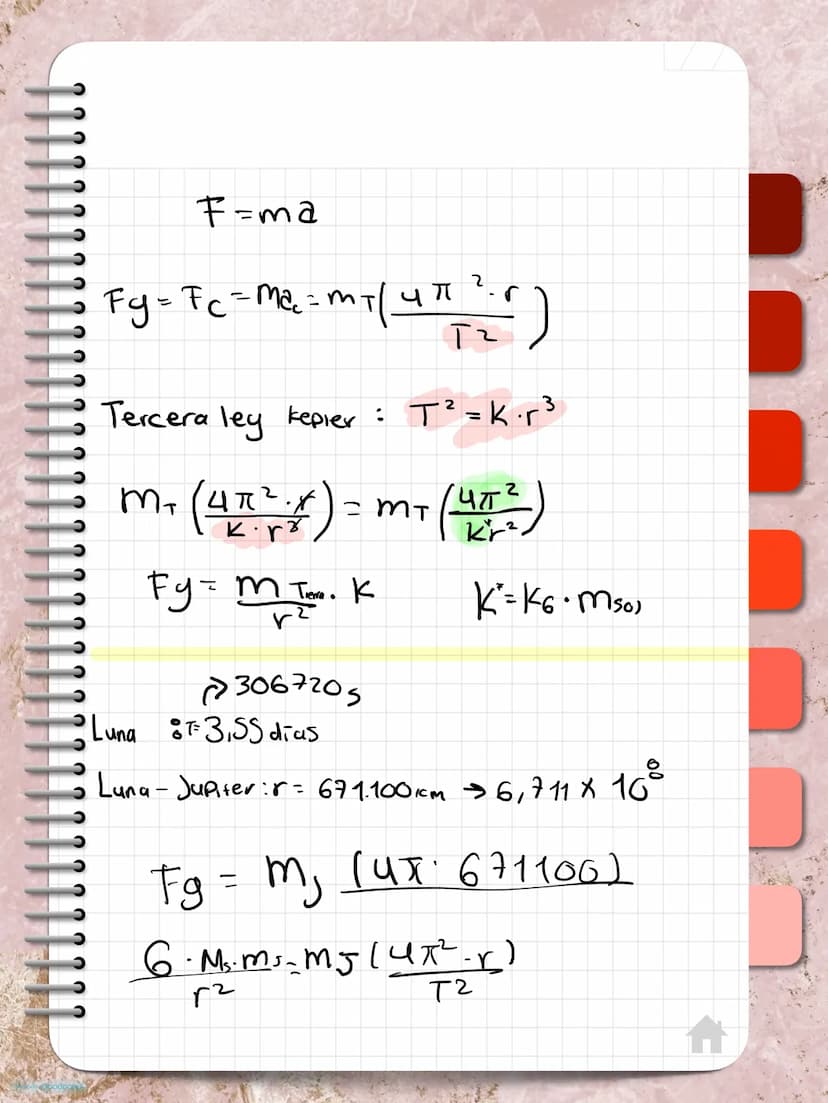 F = ma
Fg = Fc = mac = mT ( 4π² · r / T² )
Tercera ley kepler : T² = K · r³
mT ( 4π² · r / K · r³ ) = mT ( 4π² / K r² )
Fg = m Tierra / r² · K K* = KG · msol
→ 306720 s
Luna : T= 3,55 días
Luna - Jupiter : r = 671.100 km → 6,711 x 10⁸
Fg = mJ (4π · 671100)
G · Ms · mJ / r² = mJ ( 4π² · r ) / T²